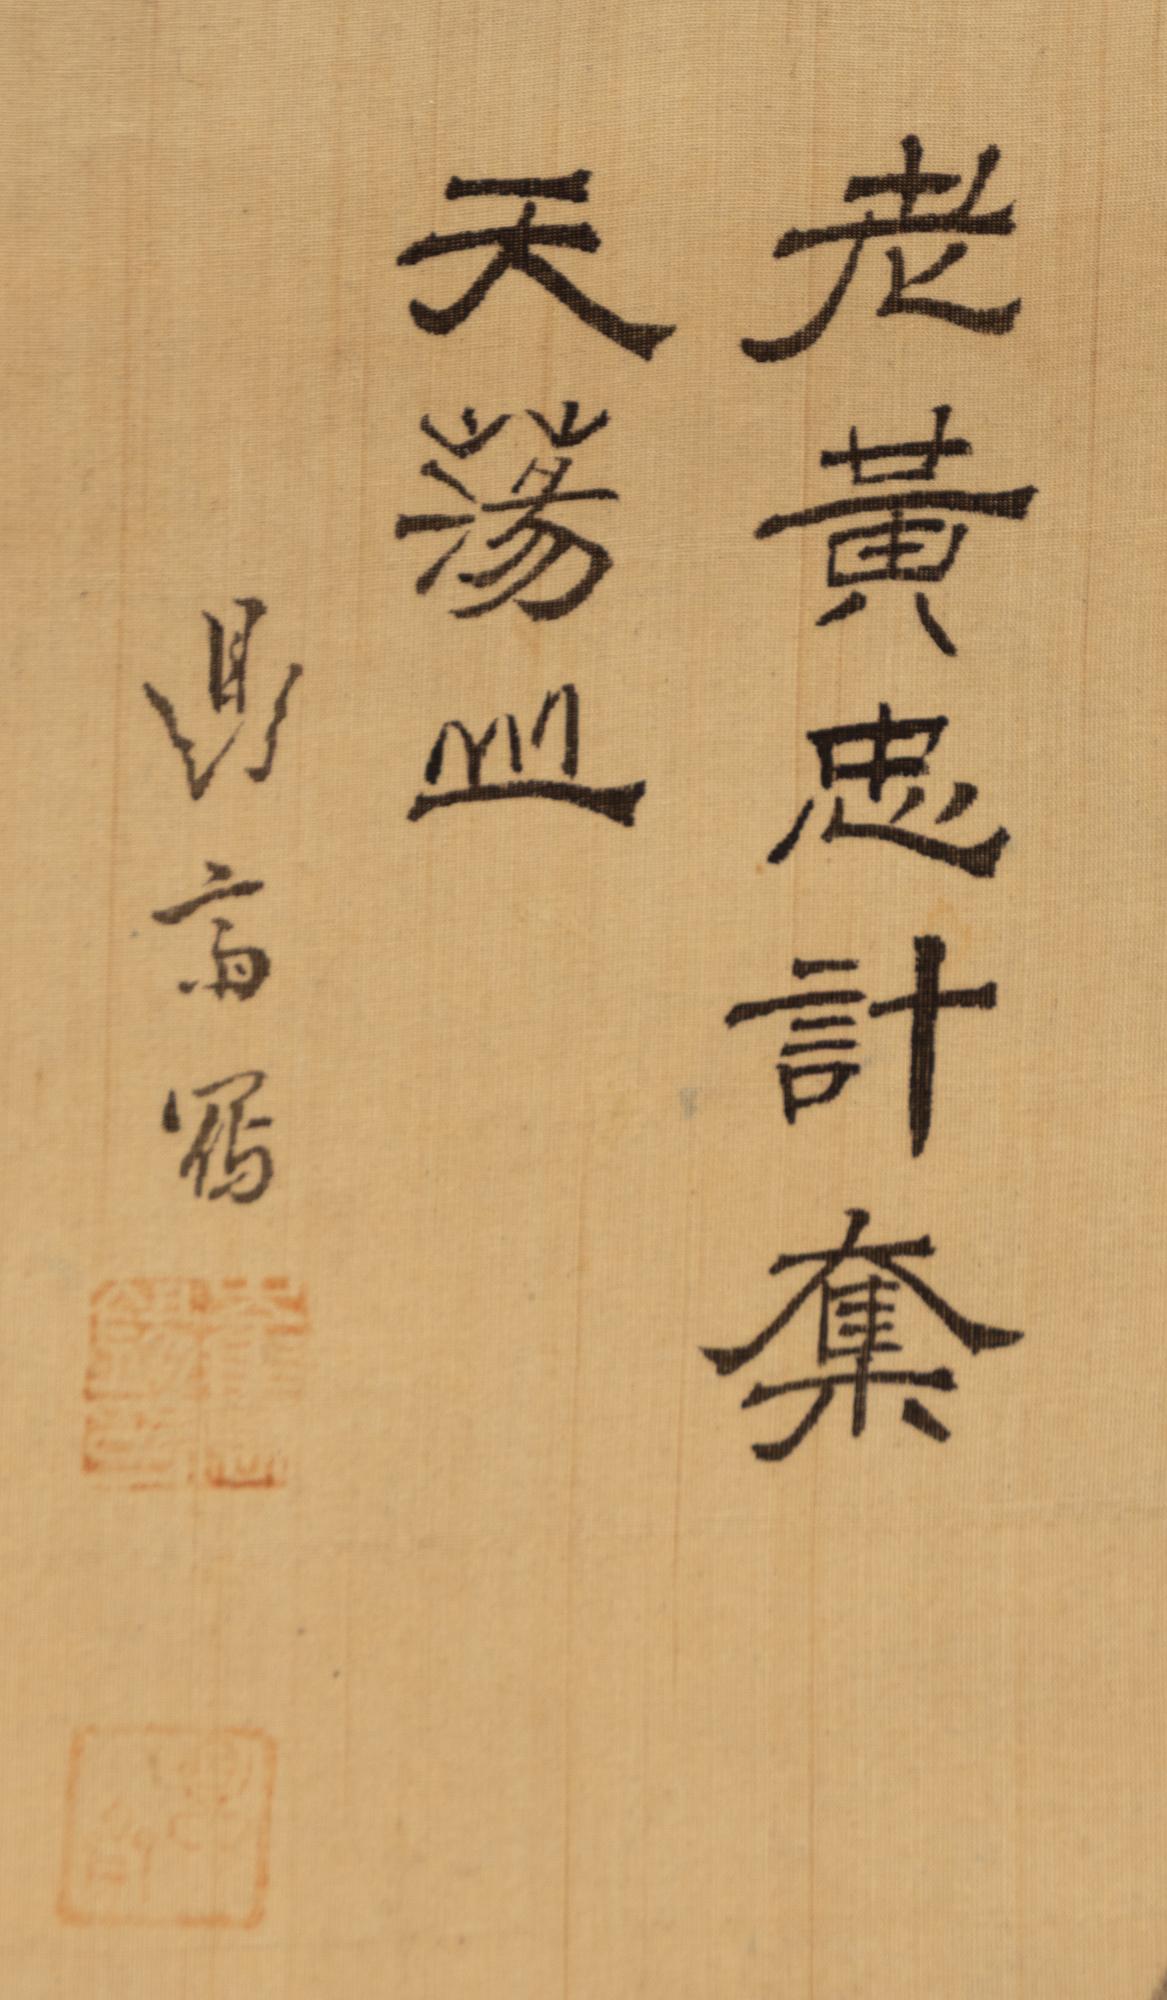 老黃忠計奪
天蕩山
鼎斎寫